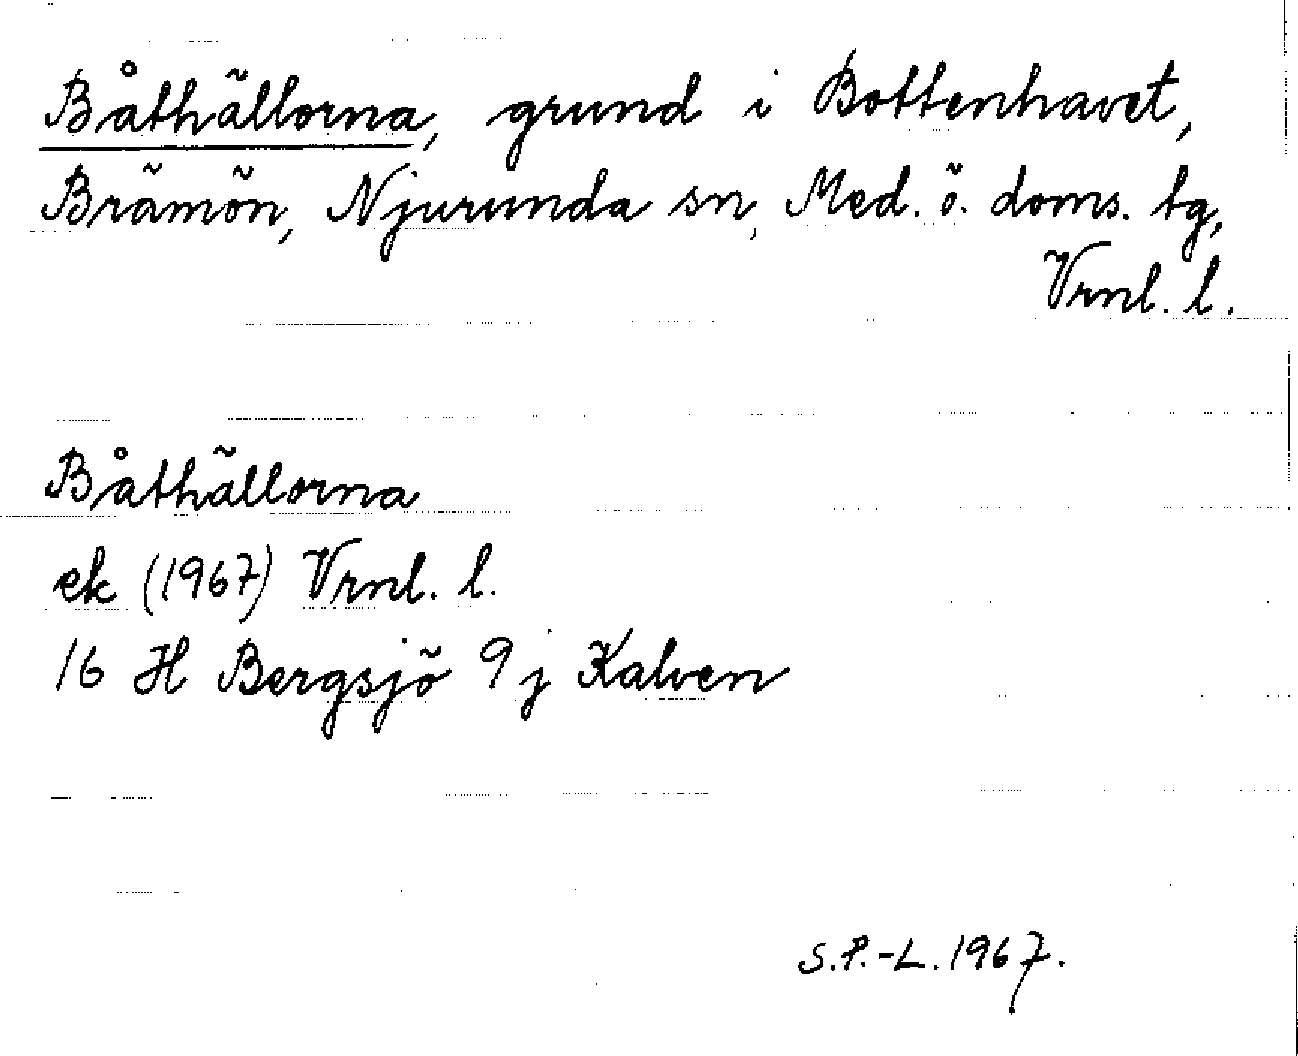 Båthällorna, grund i Bottenhavet,
Brämön, Njurunda sn, Med. ö. doms. tg,
Vrnl. l.
Båthällorna
ek (1967) Vrnl. l.
16 H Bergsjö 9j Kalven
S.P.-L. 1967.